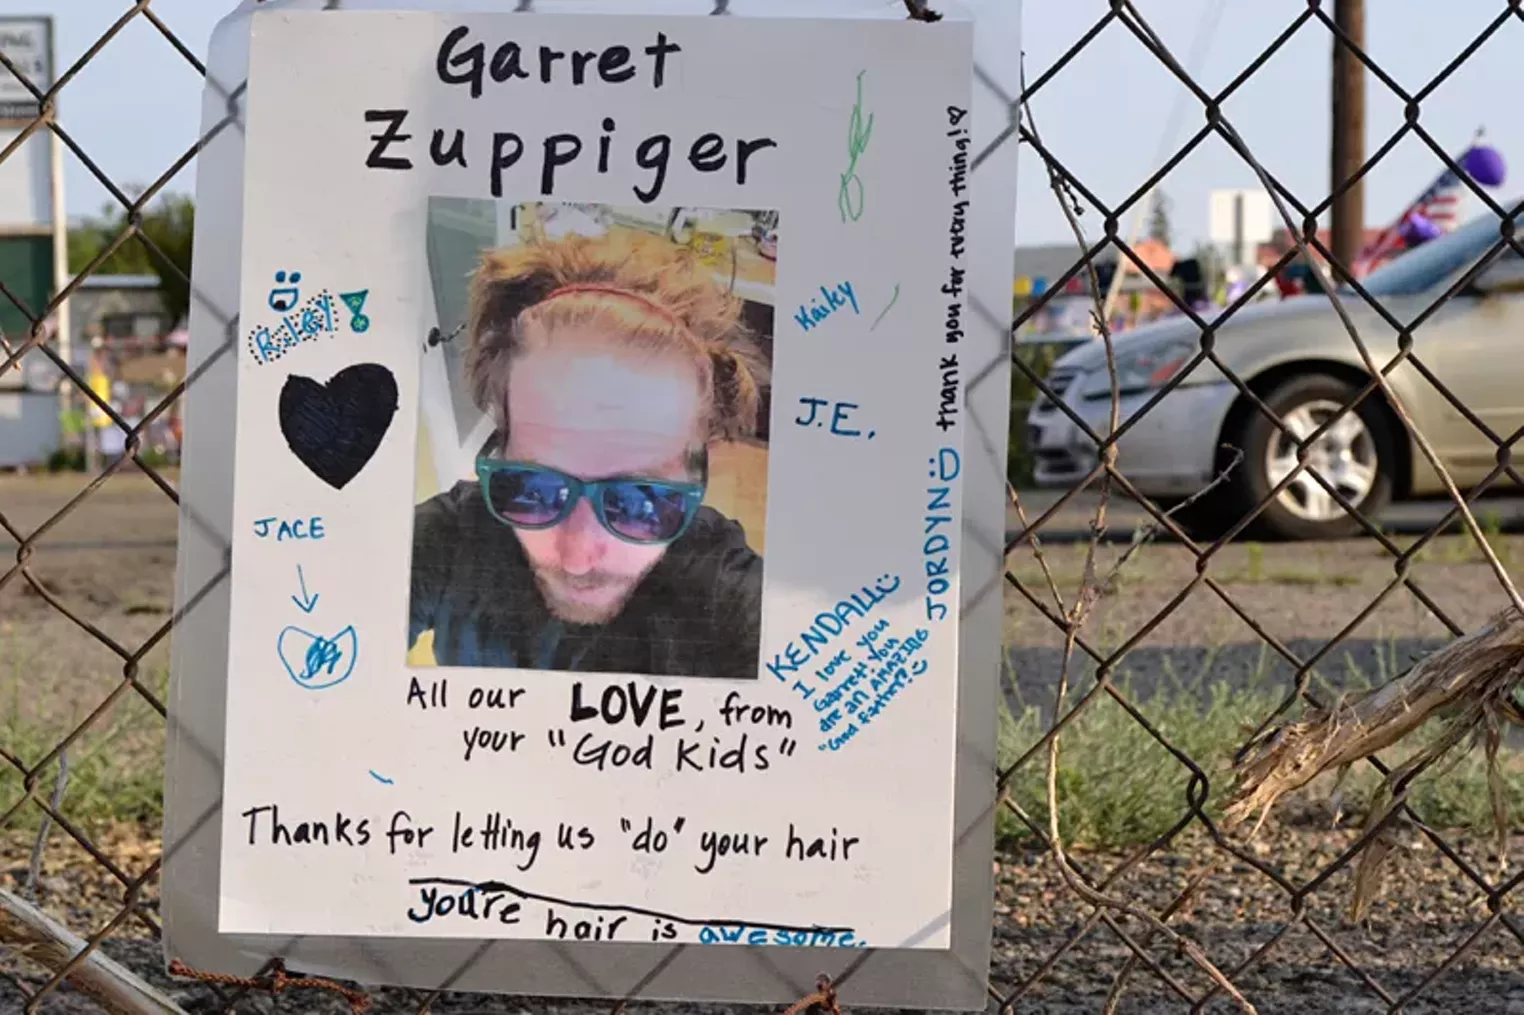 Garret
Zuppiger
Riley
JACE
Kailey
J.E.
JORDYN thank you for every thing!
KENDALL
I love you
Garrett you
are an AMAZING
"God father"!
All our LOVE, from
your "God Kids"
Thanks for letting us "do" your hair
you're hair is awesome.